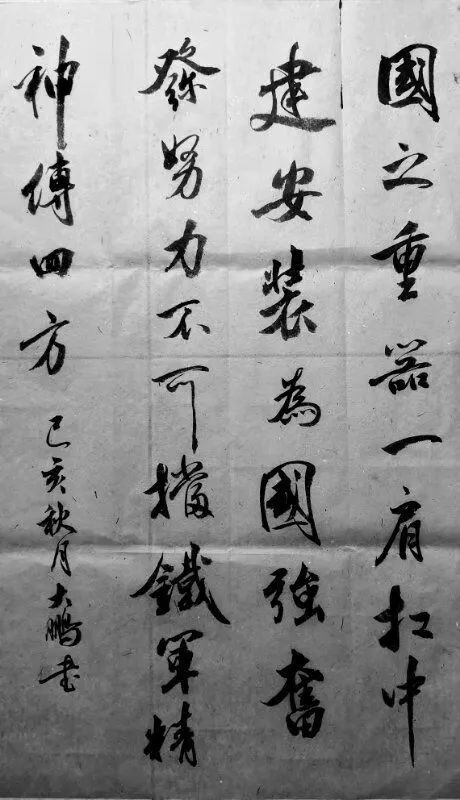 國之重器一肩扛中
建安裝為國強奮
發努力不可擋鐵軍精
神傳四方
己亥秋月大鵬書